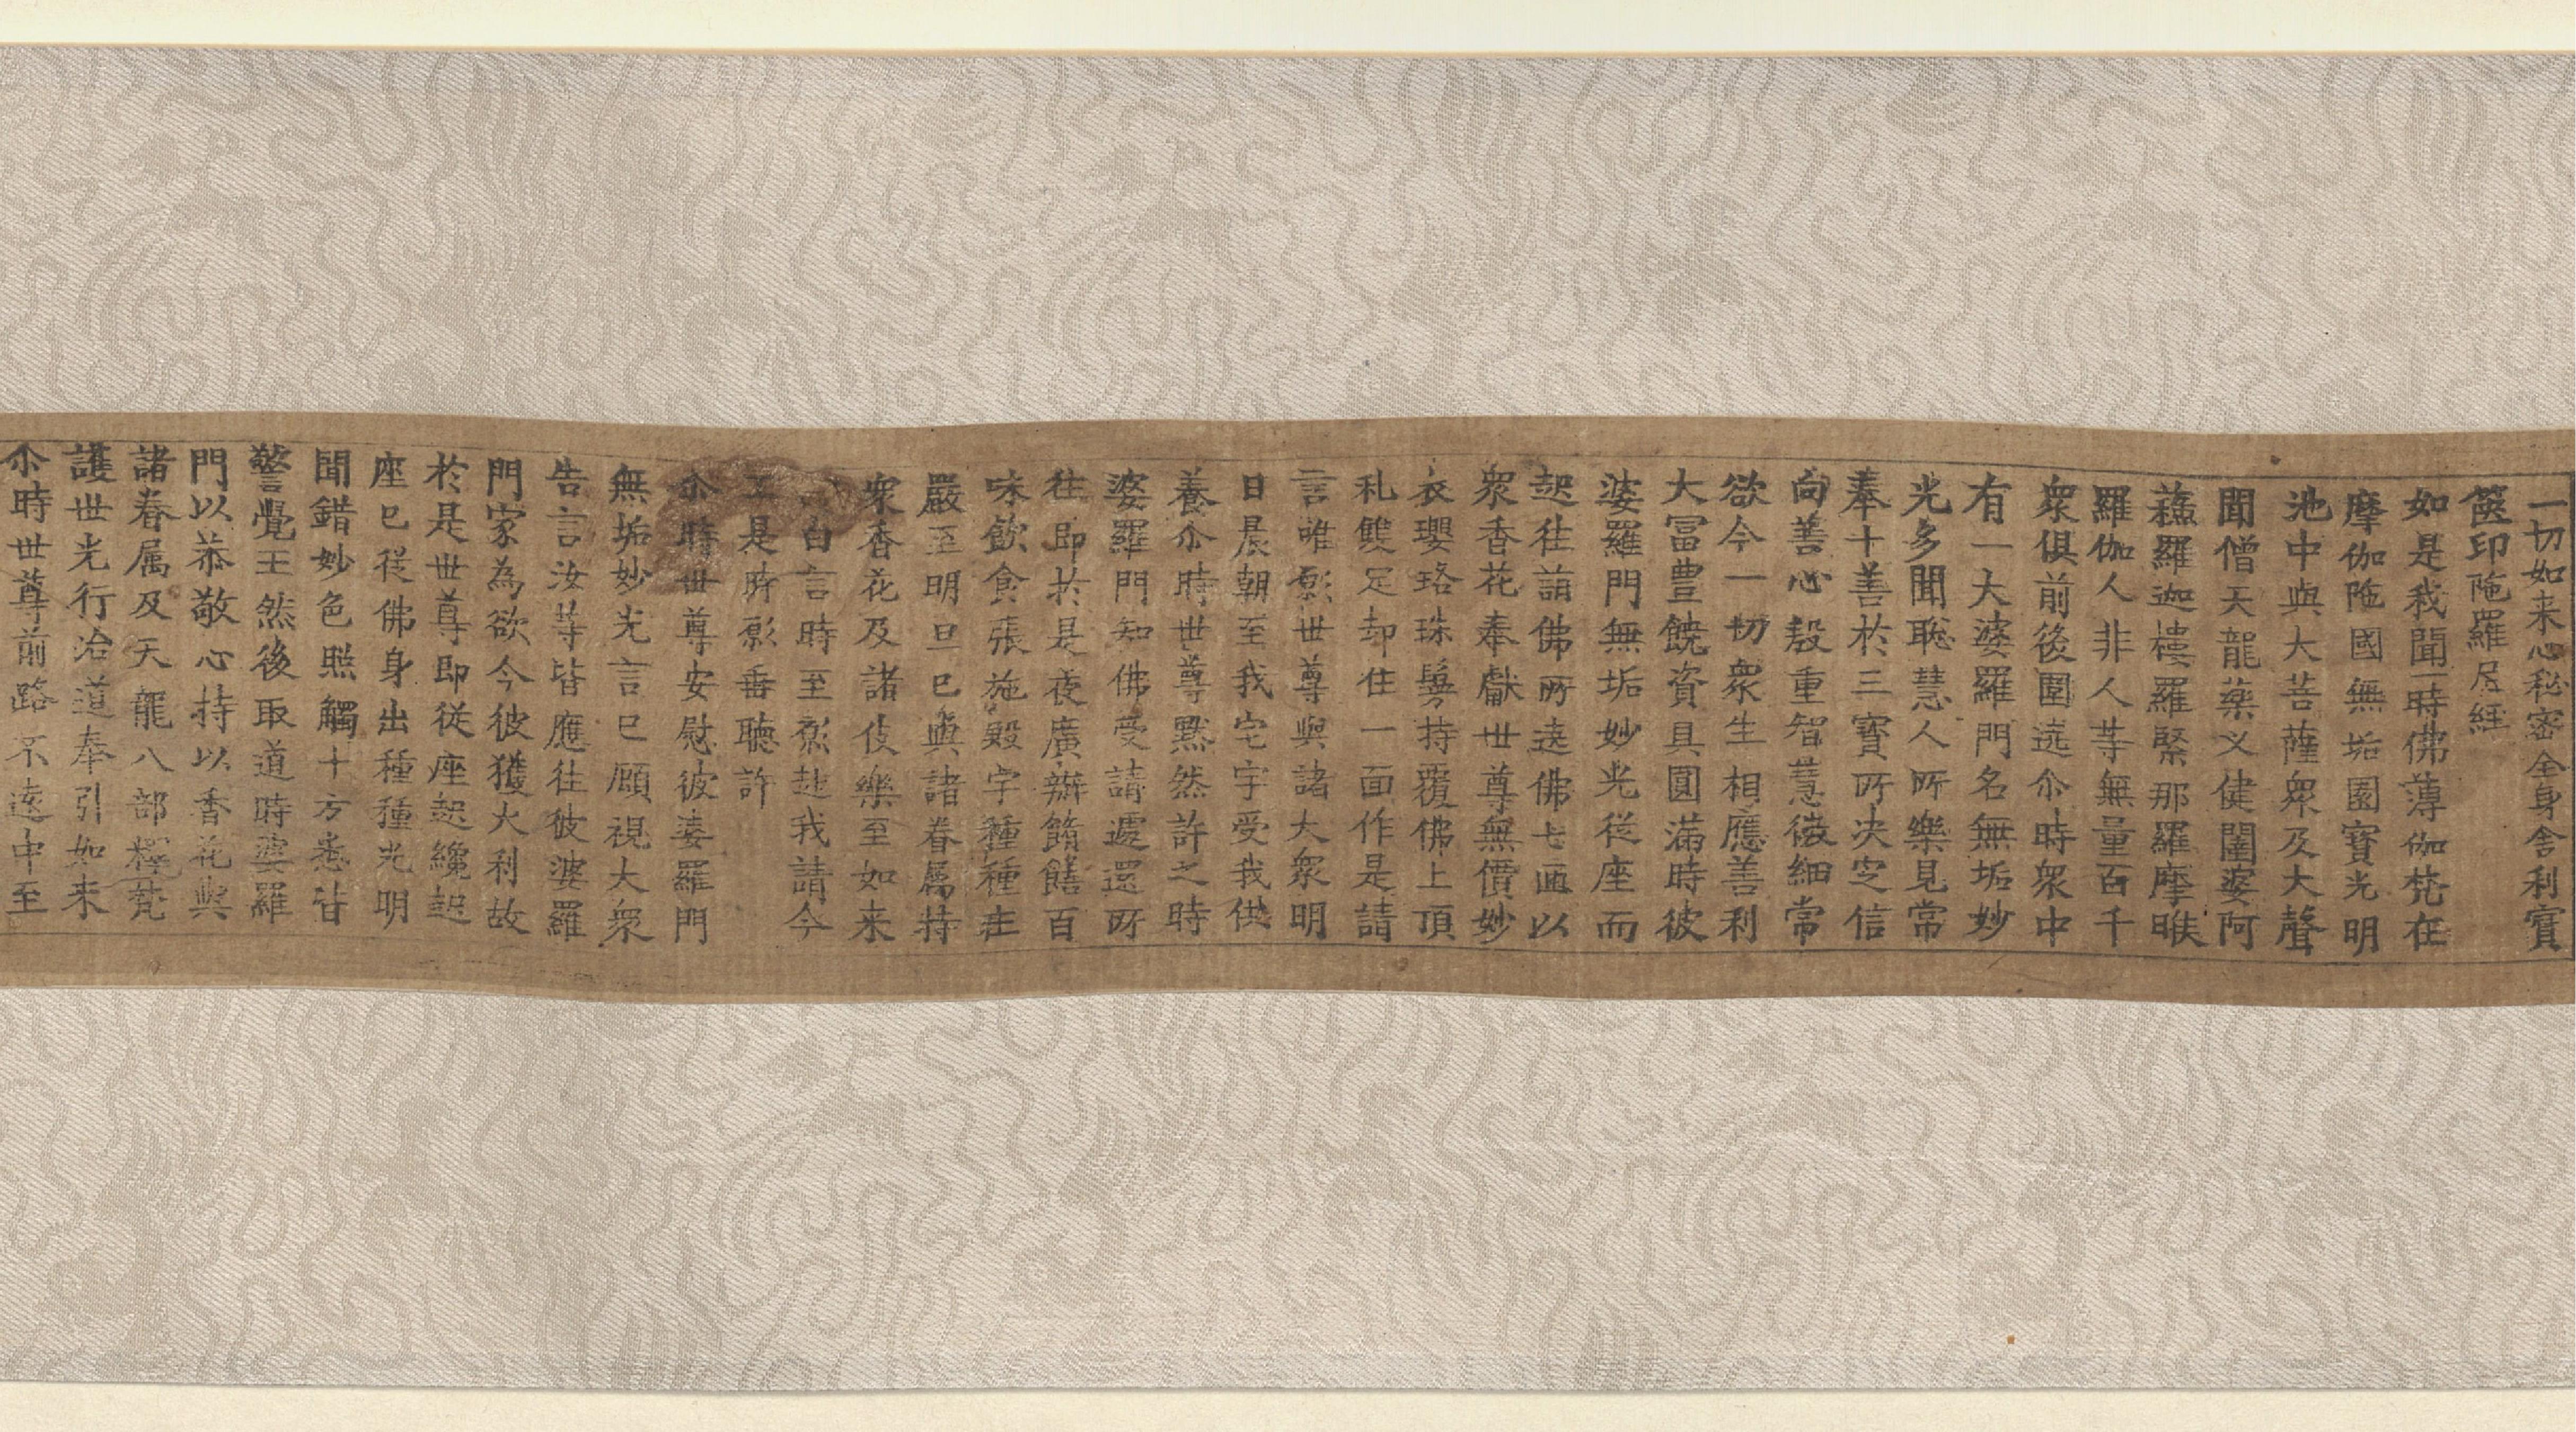 一切如来心秘密全身舍利寶
篋印陁羅尼経
如是我聞一時佛薄伽梵在
摩伽陁國無垢園寶光明
池中與大菩薩衆及大聲
聞僧天龍藥叉健闥婆阿
蘓羅迦樓羅緊那羅摩睺
羅伽人非人等無量百千
衆俱前後圍遶尒時衆中
有一大婆羅門名無垢妙
光多聞聡慧人所樂見常
奉十善於三寶所决定信
向善心殷重智慧微細常
欲令一切衆生相應善利
大冨豊饒資具圓滿時彼
婆羅門無垢妙光從座而
起往詣佛所遶佛七匝以
衆香花奉獻世尊無價妙
衣瓔珞珠鬘持覆佛上頂
礼雙足却住一面作是請
言唯願世尊與諸大衆明
日晨朝至我宅宇受我供
養尒時世尊黙然許之時
婆羅門知佛受請遽還所
住即於是夜廣辦餚饍百
味飲食張施殿宇種種荘
嚴至明旦已與諸眷屬持
衆香花及諸伎樂至如来
白言時至願赴我請今
正是時願垂聴許
尒時世尊安慰彼婆羅門
無垢妙光言已顧視大衆
告言汝等皆應往彼婆羅
門家為欲令彼獲大利故
於是世尊即從座起纔起
座已從佛身出種種光明
間錯妙色照觸十方悉皆
警覺王然後取道時婆羅
門以恭敬心持以香花與
諸眷属及天龍八部釋梵
護世先行治道奉引如来
尒時世尊前路不遠中至